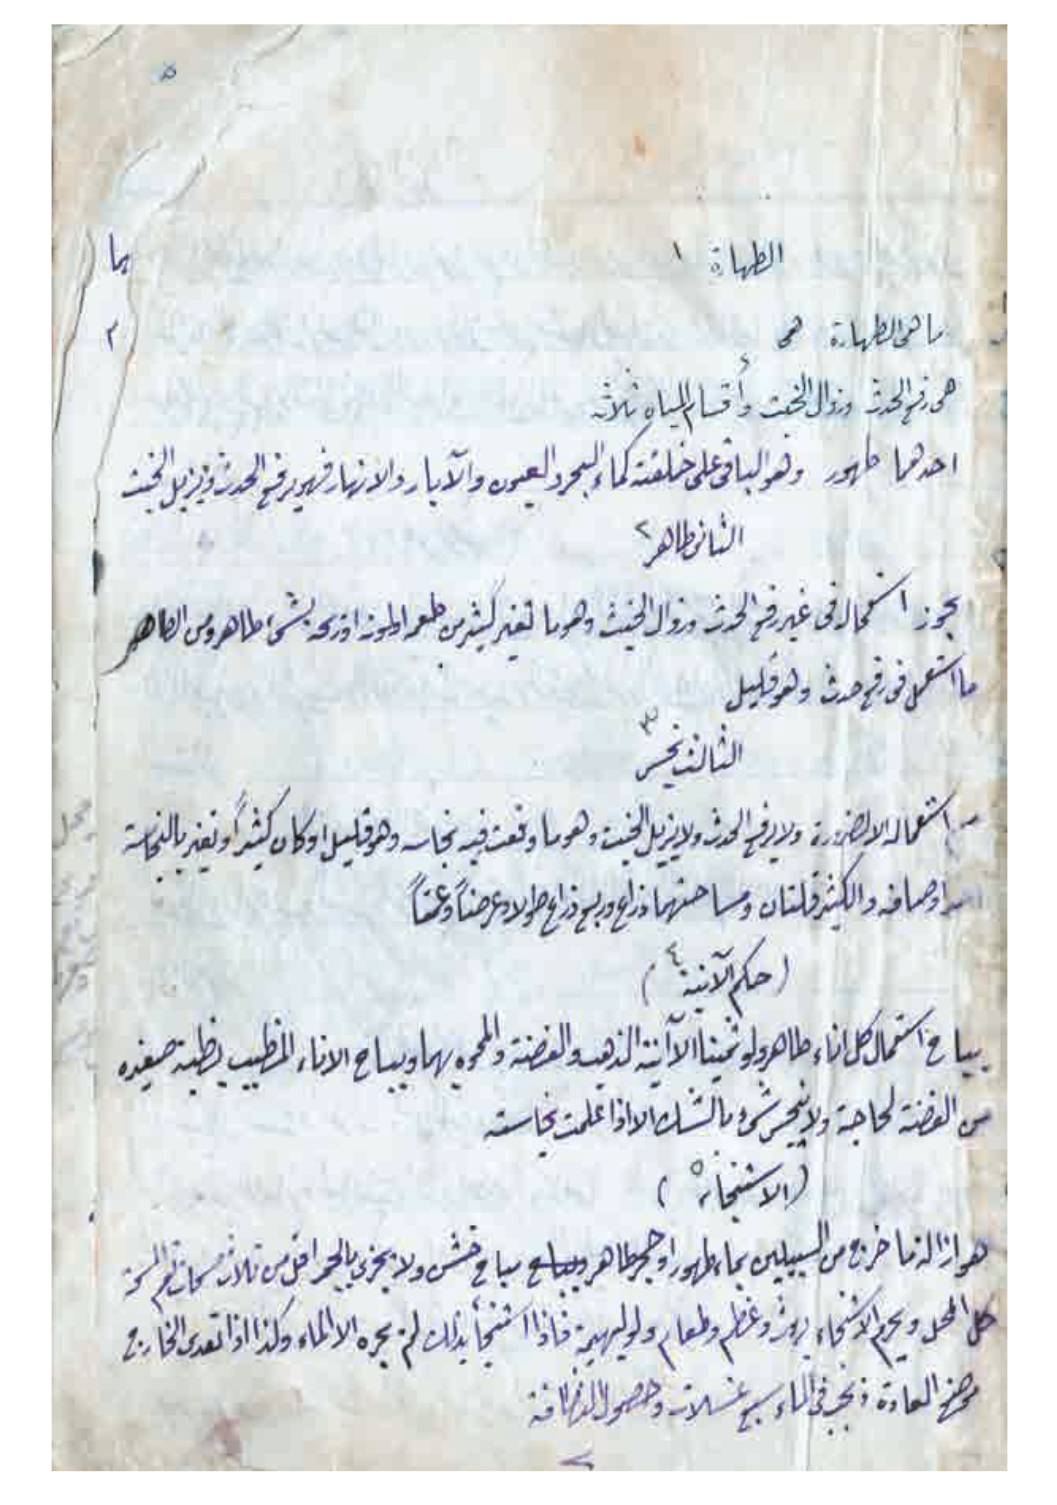 ٥
الطهاة ١
بها
ما هي الطهارة هي
٢
هي رفع الحدث وزوال الخبث وأقسام المياه ثلاثه
احدهما طهور وهو الباقي على خلقته كماء البحر والعيون والآبار والانهار فهو يرفع الحدث ويزيل الخبث
الثاني طاهر ٢
يجوز استعماله في غير رفع الحدث وزوال الخبث وهو ما تغير كثير من طعمه او لونه او ريحه بشيء طاهر ومن الطاهر
ما استعمل في رفع حدث وهو قليل
الثالث نجس ٣
استعماله الا لضرورة ولا يرفع الحدث ولا يزيل الخبث وهو ما وقعت فيه نجاسه وهو قليل او كان كثيراً وتغير بالنجاسة
اوصافه والكثير قلتان ومساحتهما ذراع وربع ذراع طولا وعرضاً وعمقاً
(حكم الآنية ٤)
يباح استعمال كل اناء طاهر ولو ثمينا الا آنية الذهب والفضة والمموه بهما ويباح الاناء المظبب بظبة صغيره
من الفضة لحاجة ولا ينجس شيء بالشك الا اذا علمت نجاسته
(الاستنجاء ٥)
هو ازالة ما خرج من السبيلين بماء طهور او حجر طاهر مباح خشن ولا يجزي بالحجر اقل من ثلاث مسحات تعم المسحة
كل المحل ويحرم الاستنجاء بروث وعظم وطعام ولو لبهيمة فاذا استنجأ بذلك لم يجزه الا الماء وكذا اذا تعدى الخارج
موضع العادة ويجب في الماء سبع غسلات وحصول النظافة